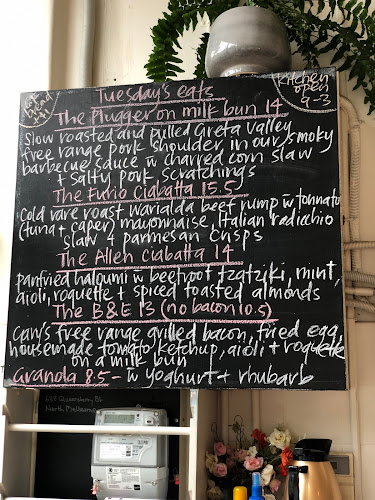 Tuesday's eats
Kitchen
open
9-3
The Plugger on milk bun 14
Slow roasted and pulled Greta Valley
free range pork shoulder in our smoky
barbecue sauce w charred corn slaw
+ salty pork scratchings
The Furio Ciabatta 15.5
Cold rare roast Warialda beef rump w tonnato
(tuna + caper) mayonnaise, Italian radicchio
slaw + parmesan crisps
The Allen Ciabatta 14
Panfried haloumi w beetroot tzatziki, mint,
aioli, roquette + spiced toasted almonds
The B&E 13 (no bacon 10.5)
Caw's free range grilled bacon, fried egg,
housemade tomato ketchup, aioli + roquette
on a milk bun
Granola 8.5 - w yoghurt + rhubarb
North Melbourne